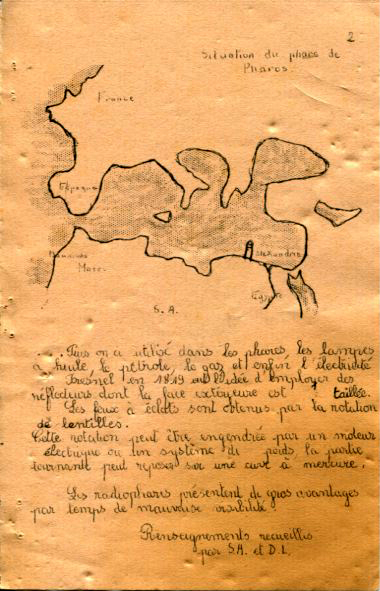 2
Situation du phare de
Pharos.
France
Espagne
Maroc.
Alexandrie
Egypte
S. A.
Puis on a utilisé dans les phares les lampes
à huile, le pétrole, le gaz et enfin l'électricité
Fresnel en 1819 eut l'idée d'employer des
réflecteurs dont la face extérieure est taillée.
Les feux à éclats sont obtenus par la rotation
de lentilles.
Cette rotation peut être engendrée par un moteur
électrique ou un système de poids, la partie
tournante peut reposer sur une cuve à mercure.
Les radiophares présentent de gros avantages
par temps de mauvaise visibilité
Renseignements recueillis
par S.A. et D.L.